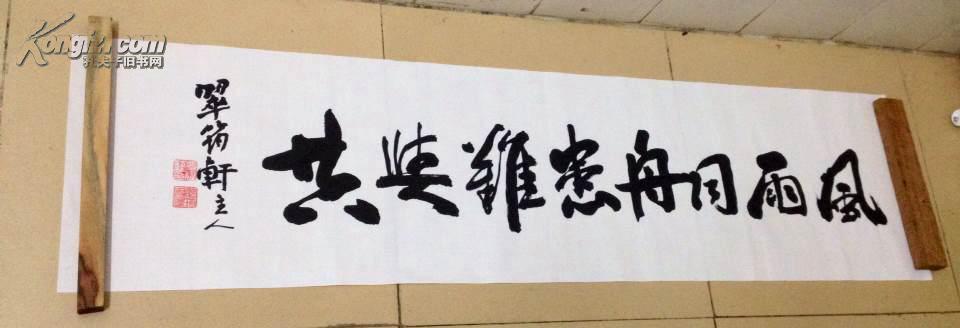 風雨同舟患難與共
翠筠軒主人
Kongfz.com
孔夫子旧书网